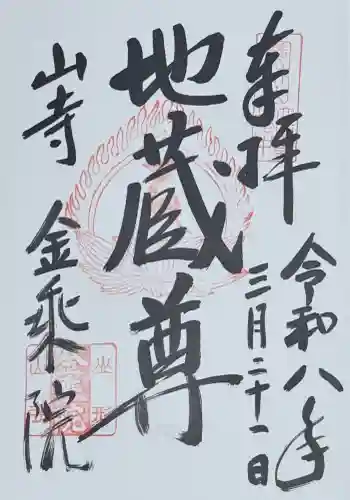 奉拝
令和八年
三月二十一日
地蔵尊
山寺
金乗院